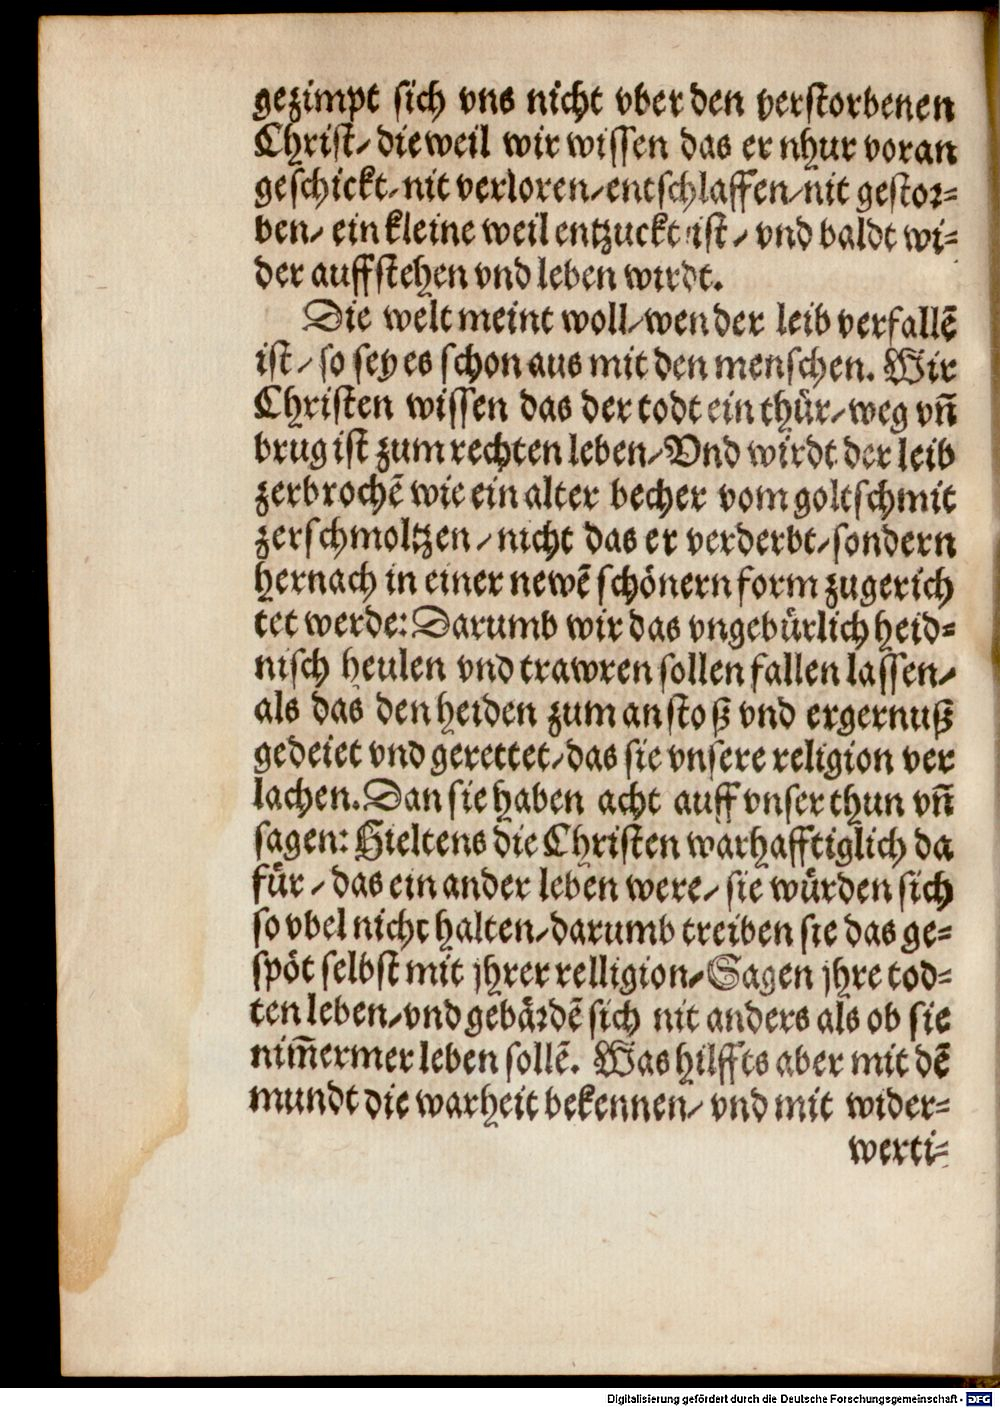 gezimpt sich vns nicht vber den verstorbenen
Christ/ die weil wir wissen das er nhur voran
geschickt/ nit verloren/ entschlaffen/ nit gestor=
ben/ ein kleine weil entzuckt ist/ vnd baldt wi=
der auffstehen vnd leben wirdt.
Die welt meint woll/ wen der leib verfallẽ
ist/ so sey es schon aus mit den menschen. Wir
Christen wissen das der todt ein thür/ weg vñ
brug ist zum rechten leben/ Vnd wirdt der leib
zerbrochẽ wie ein alter becher vom goltschmit
zerschmoltzen/ nicht das er verderbt/ sondern
hernach in einer newẽ schönern form zugerich
tet werde: Darumb wir das vngebürlich heid=
nisch heulen vnd trawren sollen fallen lassen/
als das den heiden zum anstoß vnd ergernuß
gedeiet vnd gerettet/ das sie vnsere religion ver
lachen. Dan sie haben acht auff vnser thun vñ
sagen: Hieltens die Christen warhafftiglich da
für/ das ein ander leben were/ sie würden sich
so vbel nicht halten/ darumb treiben sie das ge=
spöt selbst mit jhrer relligion/ Sagen jhre tod=
ten leben/ vnd gebärdẽ sich nit anders als ob sie
nim̃ermer leben sollẽ. Was hilffts aber mit dẽ
mundt die warheit bekennen/ vnd mit wider=
werti=
Digitalisierung gefördert durch die Deutsche Forschungsgemeinschaft - DFG